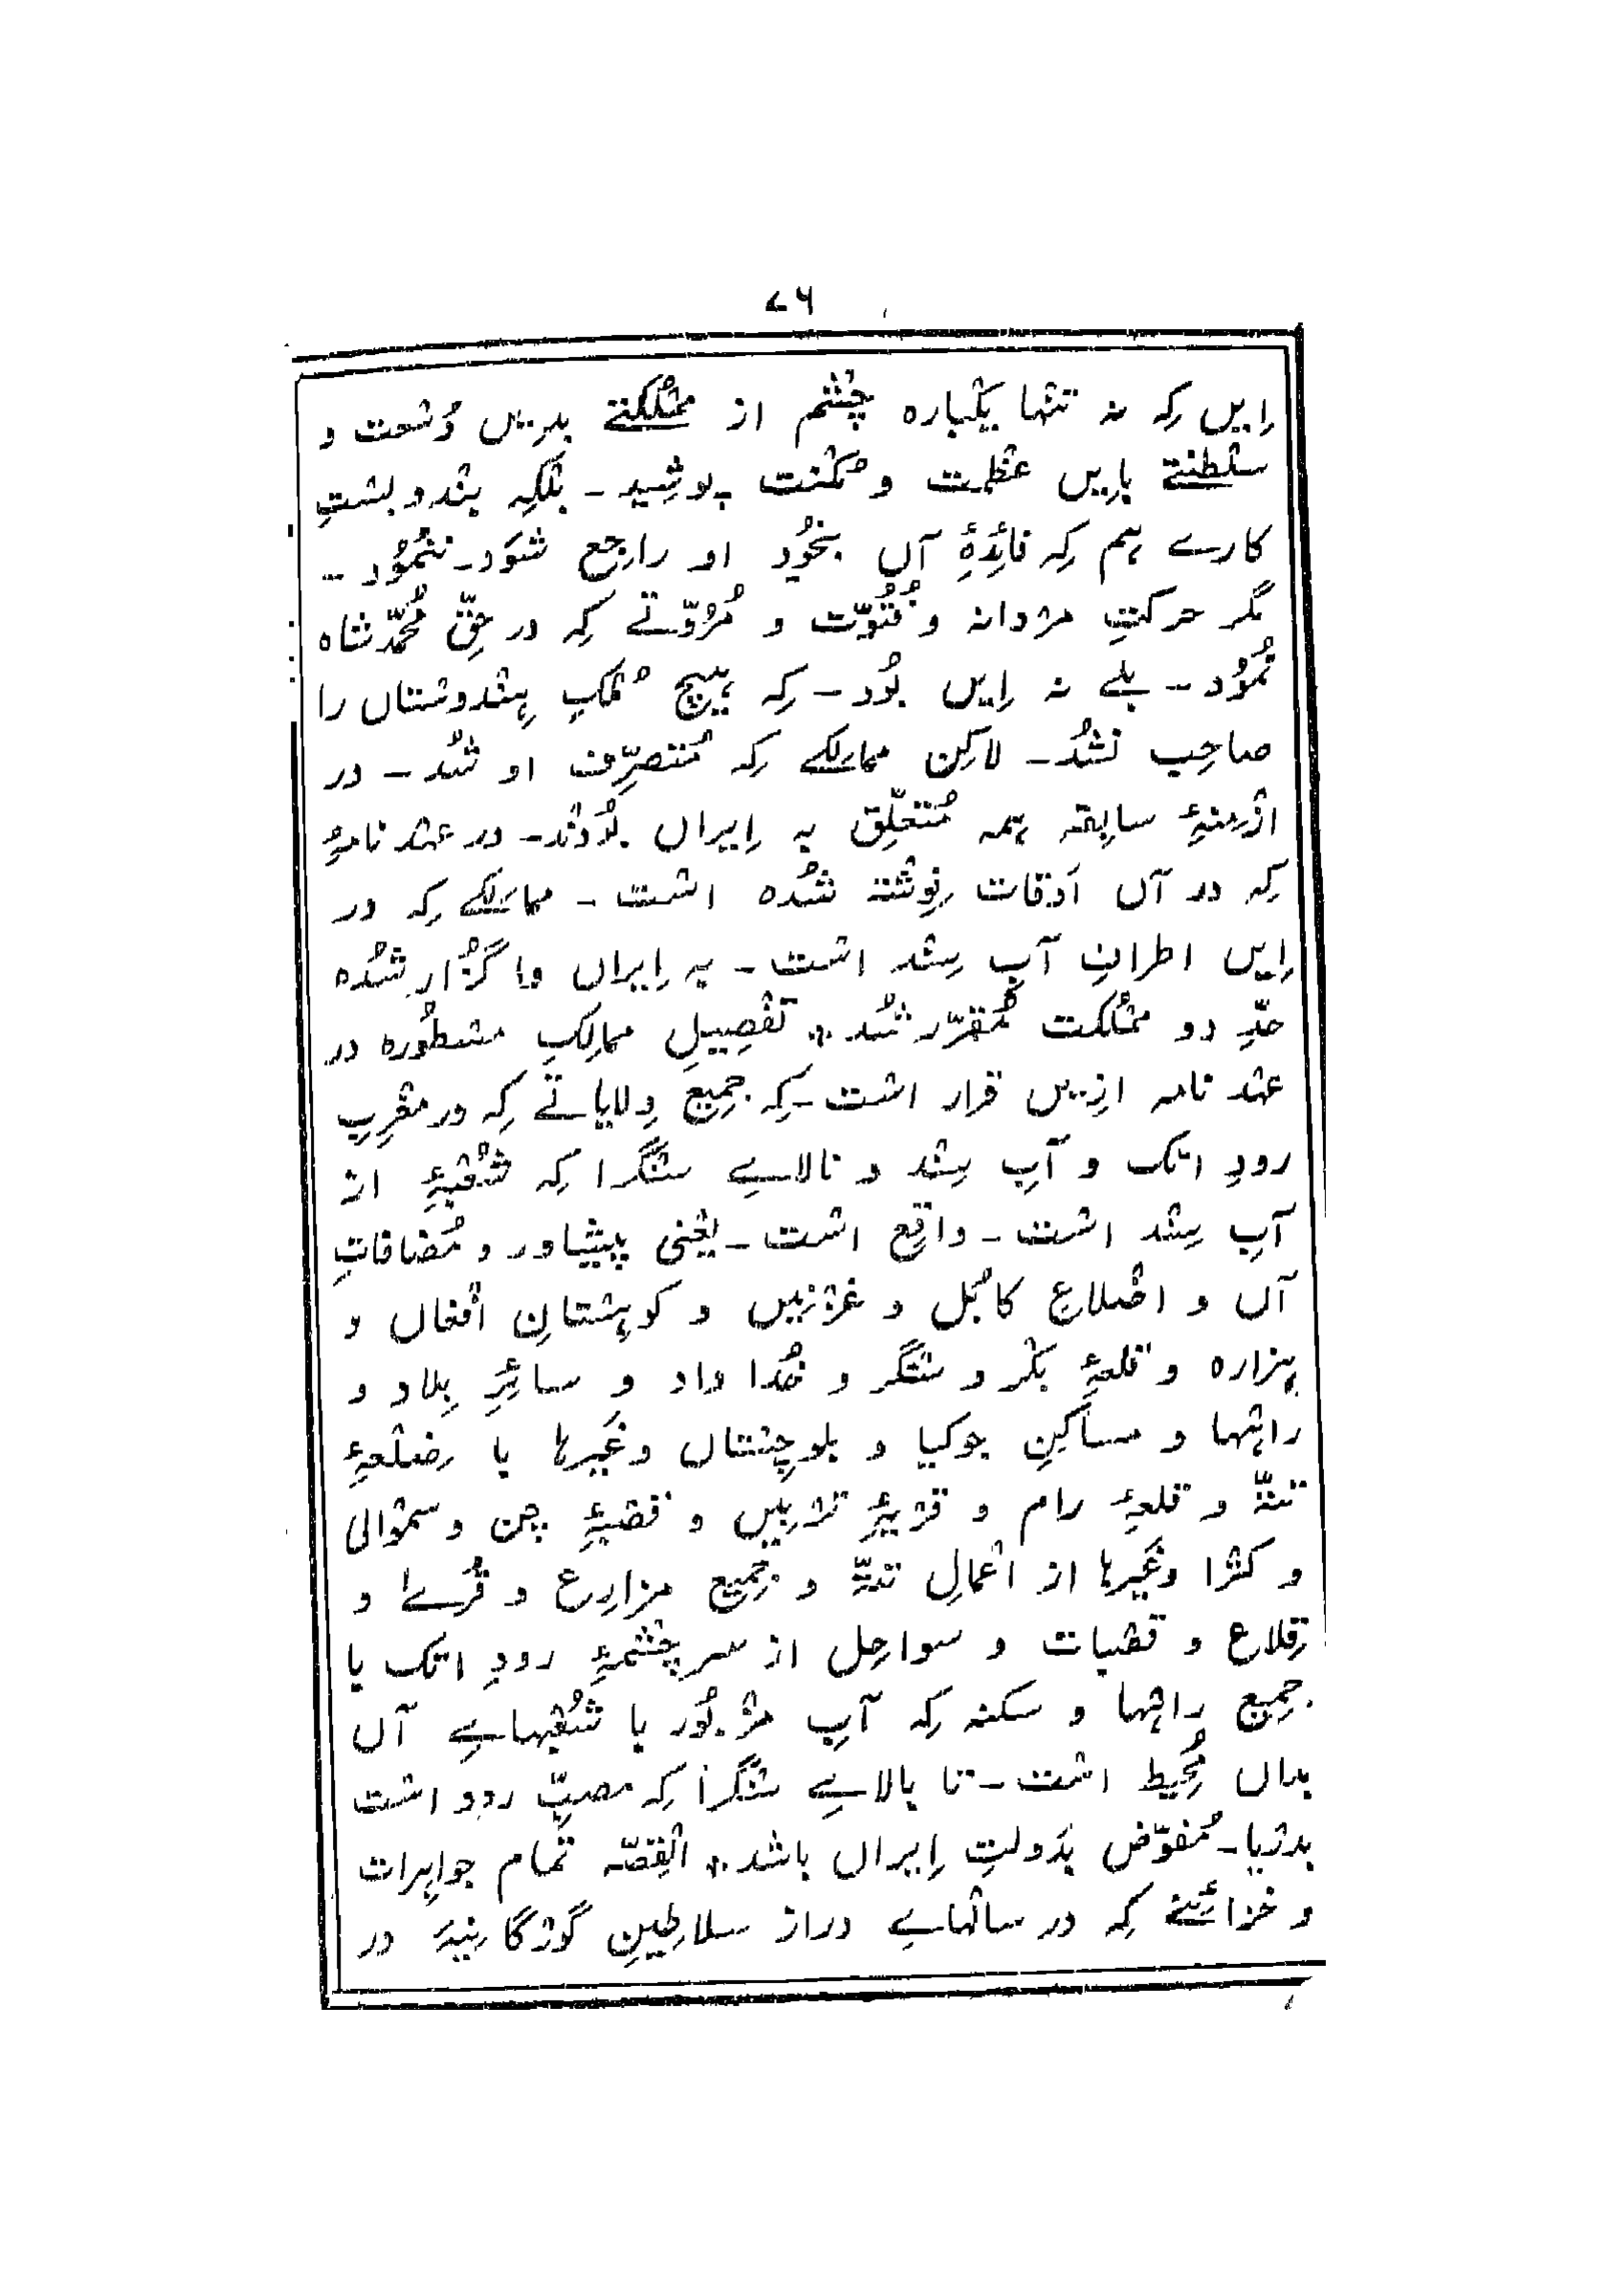 ۷۶
اِیں کِہ نہ تنہا یکبارہ چشم از مملکتے بدیں وُسعت و
سلطنتے باِیں عظمت و مُکنت پوشِید ـ بلکِہ بندوبستِ
کارے ہم کِہ فائِدۂِ آں بخُود او راجِع شوَد ـ ننمُود ـ
مگر حرکتِ مردانہ و فُتُوّت و مُرُوّتے کِہ در حقِّ مُحمّد شاہ
نمُود ـ بلے نہ اِیں بُود ـ کِہ ہیچ مُلکِ ہِندوستاں را
صاحِب نشُد ـ لاکِن ممالِکے کِہ مُتصرِّف او شُد ـ در
ازمِنۂِ سابِقہ ہمہ مُتعلِّق بہ اِیراں بُودند ـ در عہد نامۂِ
کِہ در آں اَوقات نِوِشتہ شُدہ است ـ ممالِکے کِہ در
اِیں اطرافِ آبِ سِند است ـ بہ اِیراں وا گُزار شُدہ
حدِّ دو مملکت مُقرّر شُد ٭ تفصِیلِ ممالِکِ مسطُورہ در
عہد نامہ ازِیں قرار است ـ کِہ جمِیع وِلایاتے کِہ در مغرِبِ
رودِ اتک و آبِ سِند و نالاے سنگرا کِہ شُعبۂِ از
آبِ سِند است ـ واقِع است ـ یعنی پیشاور و مُضافاتِ
آں و اضلاعِ کابُل و غزنِیں و کوہِستانِ افغاں و
ہزارہ و قلعۂِ بکر و سنگر و خُدا داد و سائِرِ بِلاد و
راہہا و مساکِنِ جوکیا و بلوچِستاں وغَیرہا با ضِلعۂِ
تتّہ و قلعۂِ رام و قریۂِ تربِیں و قصبۂِ چن و سموالی
و کترا وغَیرہا از اعمالِ تتّہ و جمِیع مزارِع و قُرےٰ و
قِلاع و قصبات و سواحِل از سرچشمۂِ رودِ اتک با
جمِیع راہہا و سکنہ کِہ آبِ مزبُور با شُعبہاے آں
بداں مُحِیط است ـ تا بالاے سنگرا کِہ مصبِّ رود است
بدریا ـ مُفوّض بدَولتِ اِیراں باشد ٭ القِصّہ تمام جواہِرات
و خزائِنے کِہ در سالہاے دراز سلاطِینِ گورگانِیہ در